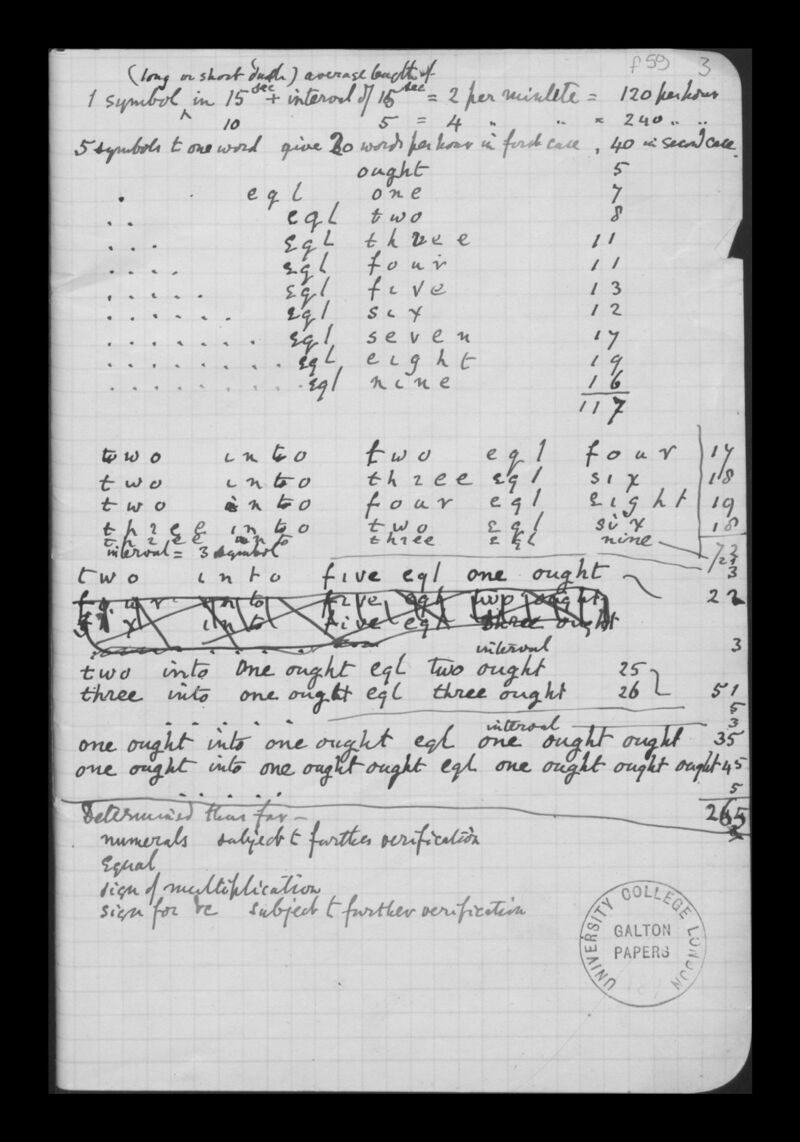 f59 3
(long or short dash) average length of
1 symbol ^ in 15 sec + interval of 15 sec = 2 per minute = 120 per hour
10 5 = 4 " " = 240 " "
5 symbols to one word give 20 words per hour in first case, 40 in second case.
ought 5
. eql one 7
. . eql two 8
. . . eql three 11
. . . . eql four 11
. . . . . eql five 13
. . . . . . eql six 12
. . . . . . . eql seven 17
. . . . . . . . eql eight 19
. . . . . . . . . eql nine 16
117
two into two eql four 17
two into three eql six 18
two into four eql eight 19
three into two eql six 18
three into three eql nine
interval = 3 symbol
72
3
two into five eql one ought 22
four into five eql two ought
six into five eql three ought
. . . . . . interval 3
two into one ought eql two ought 25
three into one ought eql three ought 26 51
. . . . . . 5
interval 3
one ought into one ought eql one ought ought 35
one ought into one ought ought eql one ought ought ought 45
. . . . . . 5
265
Determined thus far –
numerals subject to further verification
Equal
sign of multiplication
sign for subject to further verification
UNIVERSITY COLLEGE LONDON
GALTON
PAPERS